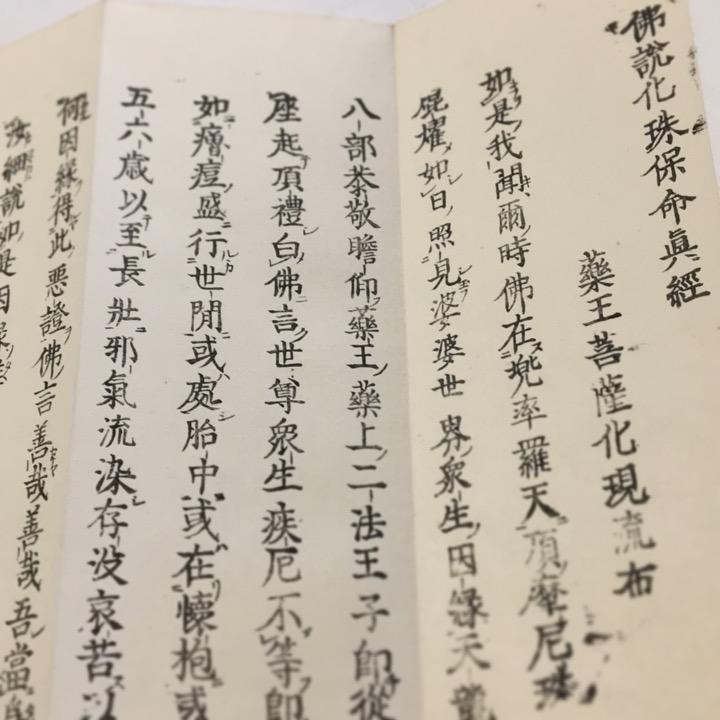 佛說化珠保命眞經
藥王菩薩化現流布
如是我聞爾時佛在兜率羅天頂摩尼珠
晃耀如日照見娑婆世界衆生因緣天龍
八部恭敬瞻仰藥王藥上二法王子即從
座起頂禮白佛言世尊衆生疾厄不等即
如痲痘盛行世間或處胎中或在懷抱或
五六歲以至長壯邪氣流染存没哀苦以
何因緣得此惡證佛言善哉善哉吾當
汝細說如是因緣